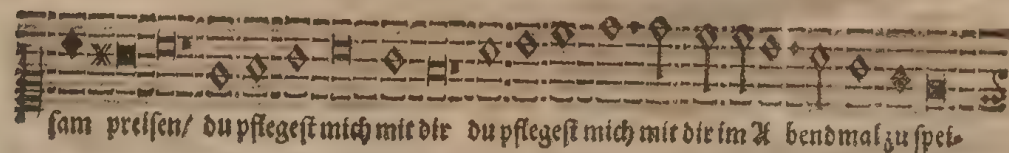 ſam preiſen/ du pflegeſt mich mit dir du pflegeſt mich mit dir im A bendmal zu ſpei-